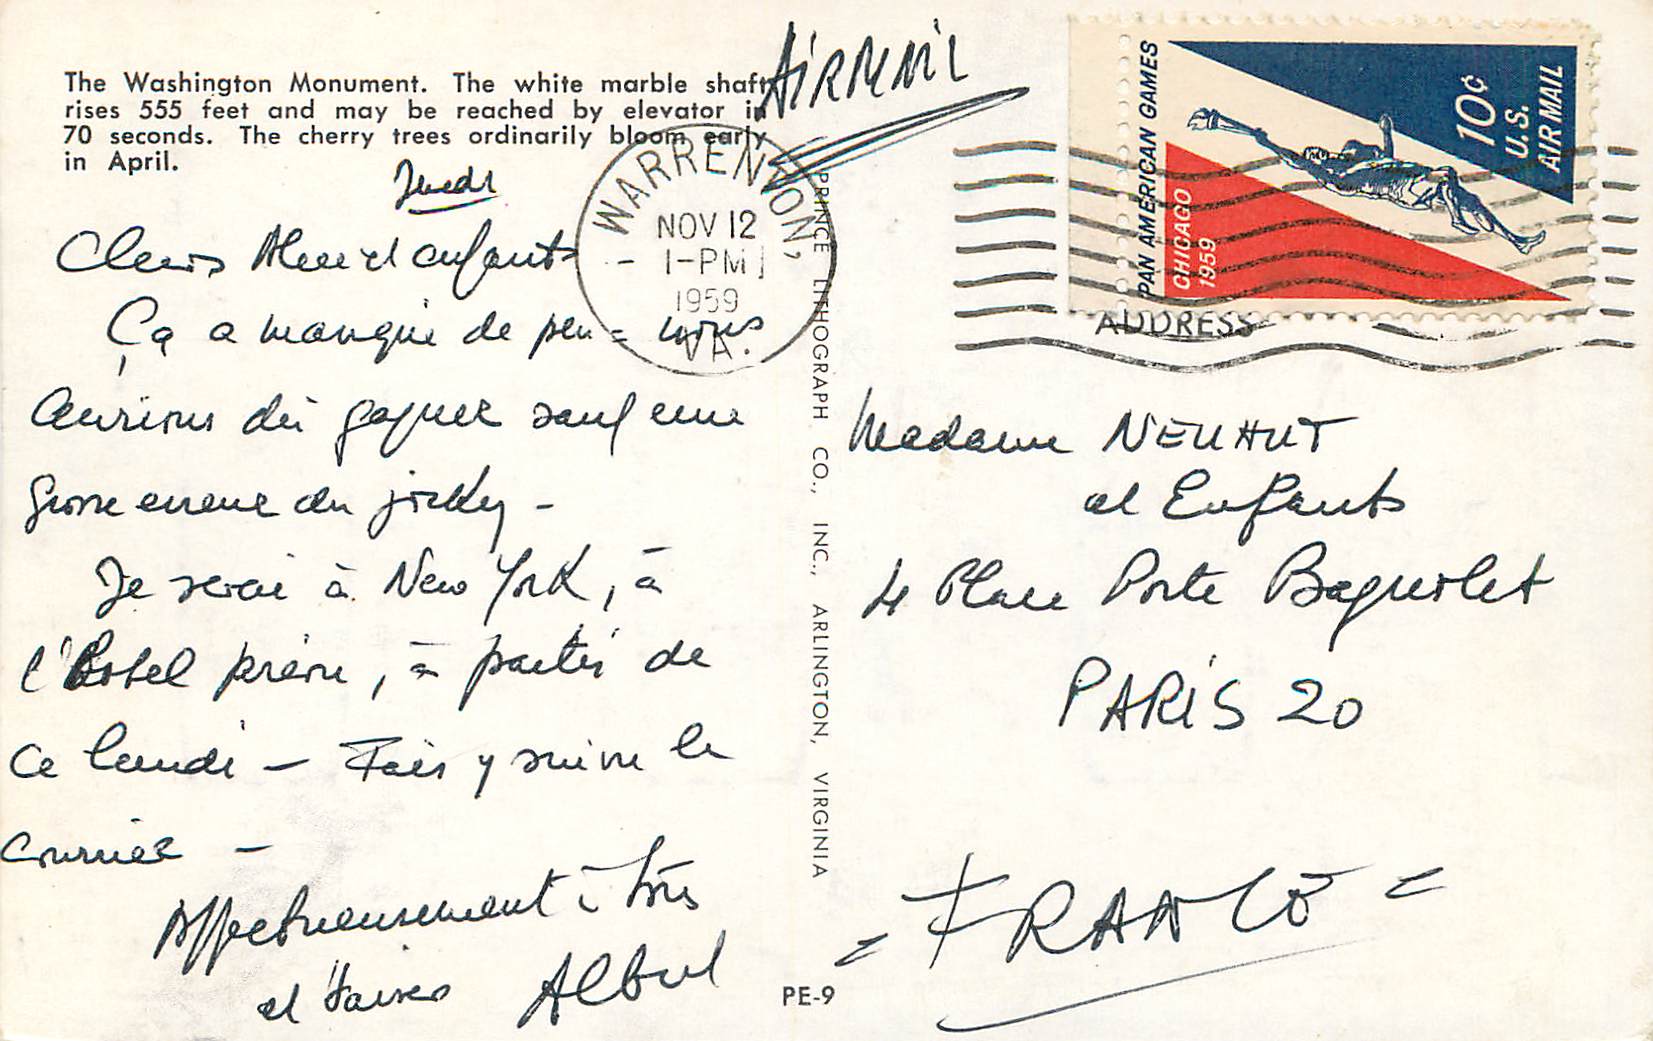 The Washington Monument. The white marble shaft
rises 555 feet and may be reached by elevator in
70 seconds. The cherry trees ordinarily bloom early
in April.
AiRMAiL
Jeudi
Chers et enfants
Ça a manqué de peu - nous
aurions dû gagner sauf une
grosse erreur du jockey -
Je serai à New York, à
l'Hotel prévu, à partir de
ce lundi - Fais y suivre le
courrier -
Affectueusement à tous
et baisers Albert
WARRENTON,
NOV 12
1-PM
1959
VA.
PRINCE LITHOGRAPH CO., INC., ARLINGTON, VIRGINIA
PE-9
PAN AMERICAN GAMES
CHICAGO
1959
10¢
U.S.
AIR MAIL
ADDRESS
Madame NEUHUT
et Enfants
4 Place Porte Bagnolet
PARiS 20
= FRANCE =